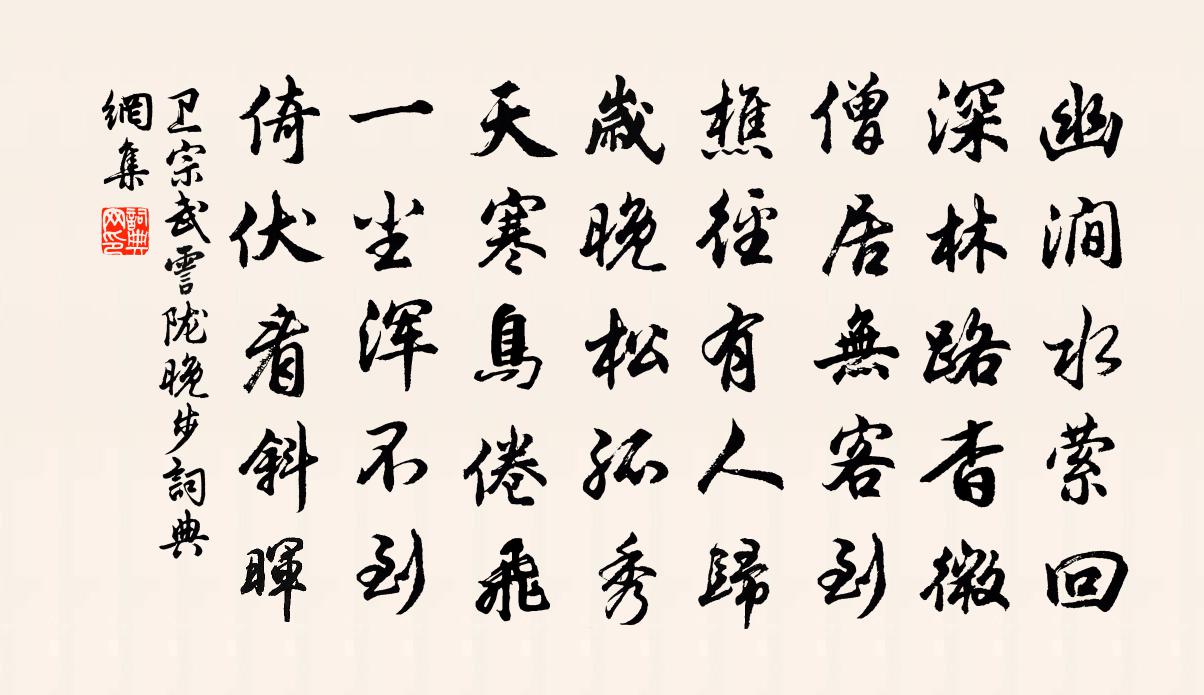 幽澗水萦回
深林路杳微
僧居無客到
樵徑有人歸
歲晚松孤秀
天寒鳥倦飛
一尘浑不到
倚伏看斜暉
卫宗武霅陇晚步詞典
網集
詞典
网印